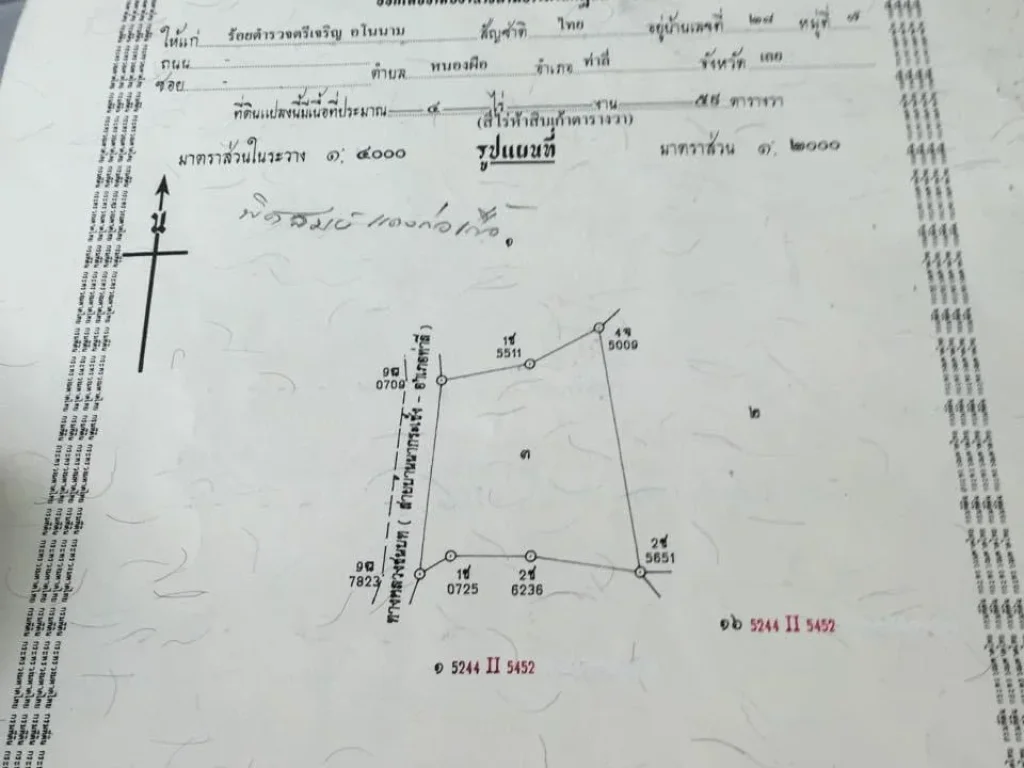 ให้แก่ ร้อยตำรวจตรีเจริญ อโนนาม สัญชาติ ไทย อยู่บ้านเลขที่ ๒๗ หมู่ที่ ๗
ถนน - ตำบล หนองผือ อำเภอ ท่าลี่ จังหวัด เลย
ซอย -
ที่ดินแปลงนี้มีเนื้อที่ประมาณ ๔ ไร่ - งาน ๕๙ ตารางวา
(สี่ไร่ห้าสิบเก้าตารางวา)
มาตราส่วนในระวาง ๑: ๔๐๐๐ รูปแผนที่ มาตราส่วน ๑: ๒๐๐๐
น
๑
4จ
5009
1ช
5511
9ฉ
0709
ทางหลวงชนบท ( สายบ้านนากระเซ็ง - อำเภอท่าลี่ )
๒
๓
2ส
5651
9ฉ
7823
1ช
0725
2ช
6236
๑๖ 5244 II 5452
๑ 5244 II 5452